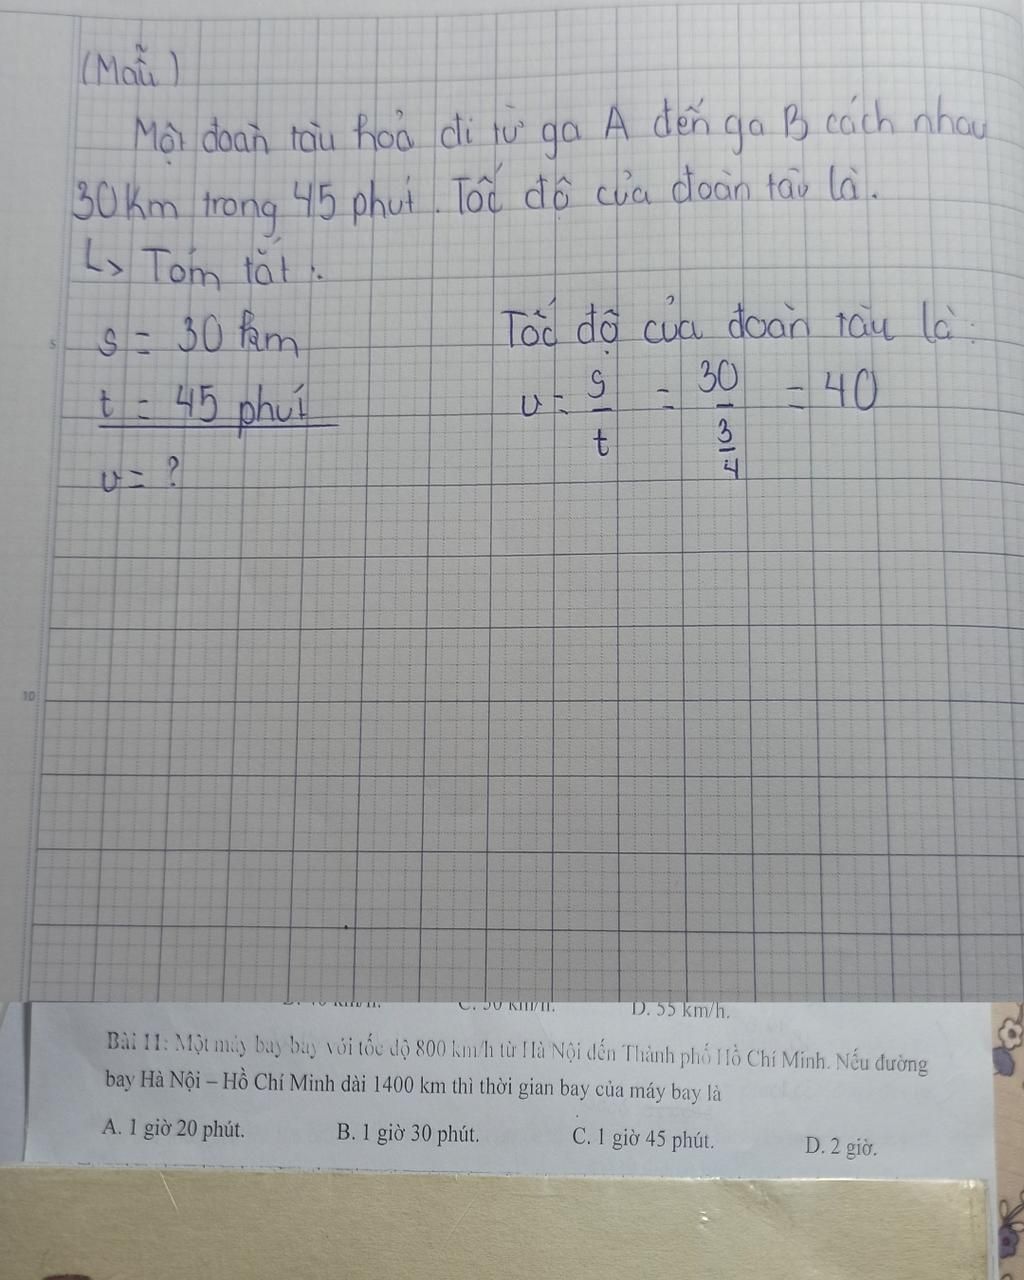 (Mẫu)
Một đoàn tàu hoả đi từ ga A đến ga B cách nhau
30km trong 45 phút. Tốc độ của đoàn tàu là.
↳ Tóm tắt:
s = 30 km
t = 45 phút
v = ?
Tốc độ của đoàn tàu là:
v = s/t = 30/(3/4) = 40
5
10
C. 50 km/h.
D. 55 km/h.
Bài 11: Một máy bay bay với tốc độ 800 km/h từ Hà Nội đến Thành phố Hồ Chí Minh. Nếu đường
bay Hà Nội – Hồ Chí Minh dài 1400 km thì thời gian bay của máy bay là
A. 1 giờ 20 phút. B. 1 giờ 30 phút. C. 1 giờ 45 phút. D. 2 giờ.